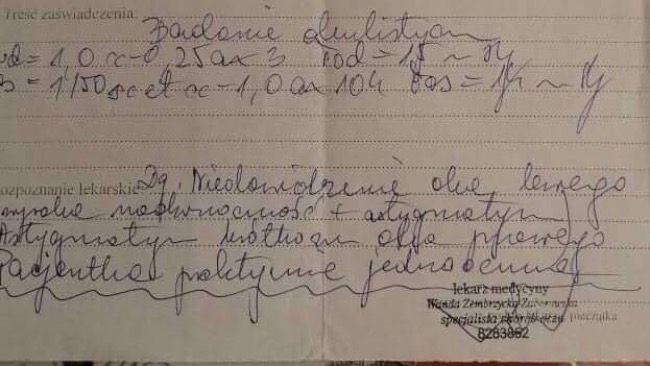 Treść zaświadczenia:
Badanie okulistyczn
= 1,0 cc -0,25 ax 3 Tod = 15
= 1/50 sc et cc -1,0 ax 104 Tos = 14
ozpoznanie lekarskie Dg. Niedowidzenie oka lewego
nadwzroczność + astygmatyzm
Astygmatyzm krótkowz oka prawego
Pacjentka praktycznie jednooczna
lekarz medycyny
Wanda Zembrzycka
specjalista chorób oczu pieczątka
8283862